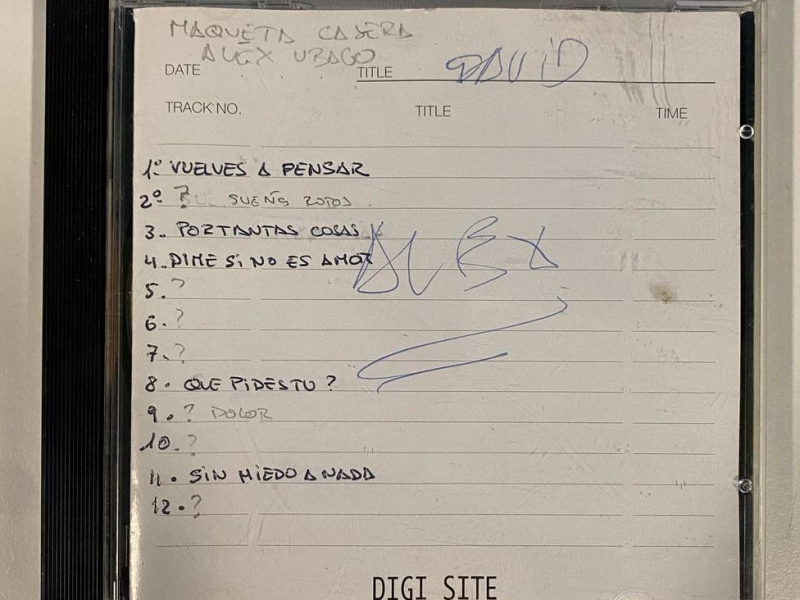 MAQUETA CASERA
ALEX UBAGO
DATE TITLE DAVID
TRACK NO. TITLE TIME
1º VUELVES A PENSAR
2º ? SUEÑOS ROTOS
3. POR TANTAS COSAS
4. DIME SI NO ES AMOR
ALEX
5. ?
6. ?
7. ?
8. QUE PIDES TU ?
9. ? DOLOR
10. ?
11. SIN MIEDO A NADA
12. ?
DIGI SITE